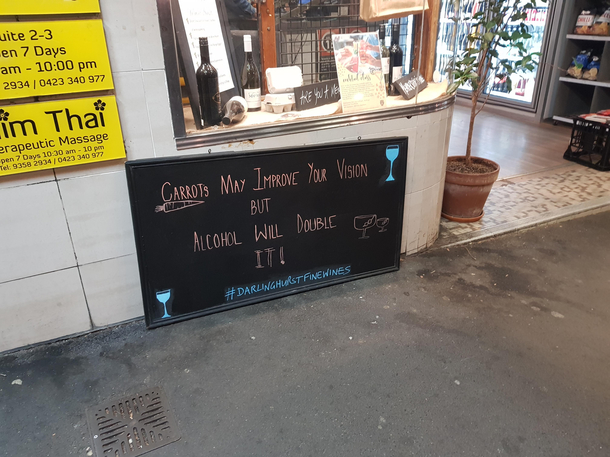 uite 2-3
en 7 Days
am - 10:00 pm
2934 / 0423 340 977
im Thai
erapeutic Massage
pen 7 Days 10:30 am - 10 pm
Tel: 9358 2934 / 0423 340 977
ARE YOU A
CARROTS MAY IMPROVE YOUR VISION
BUT
ALCOHOL WILL DOUBLE
IT!
#DARLINGHURSTFINEWINES